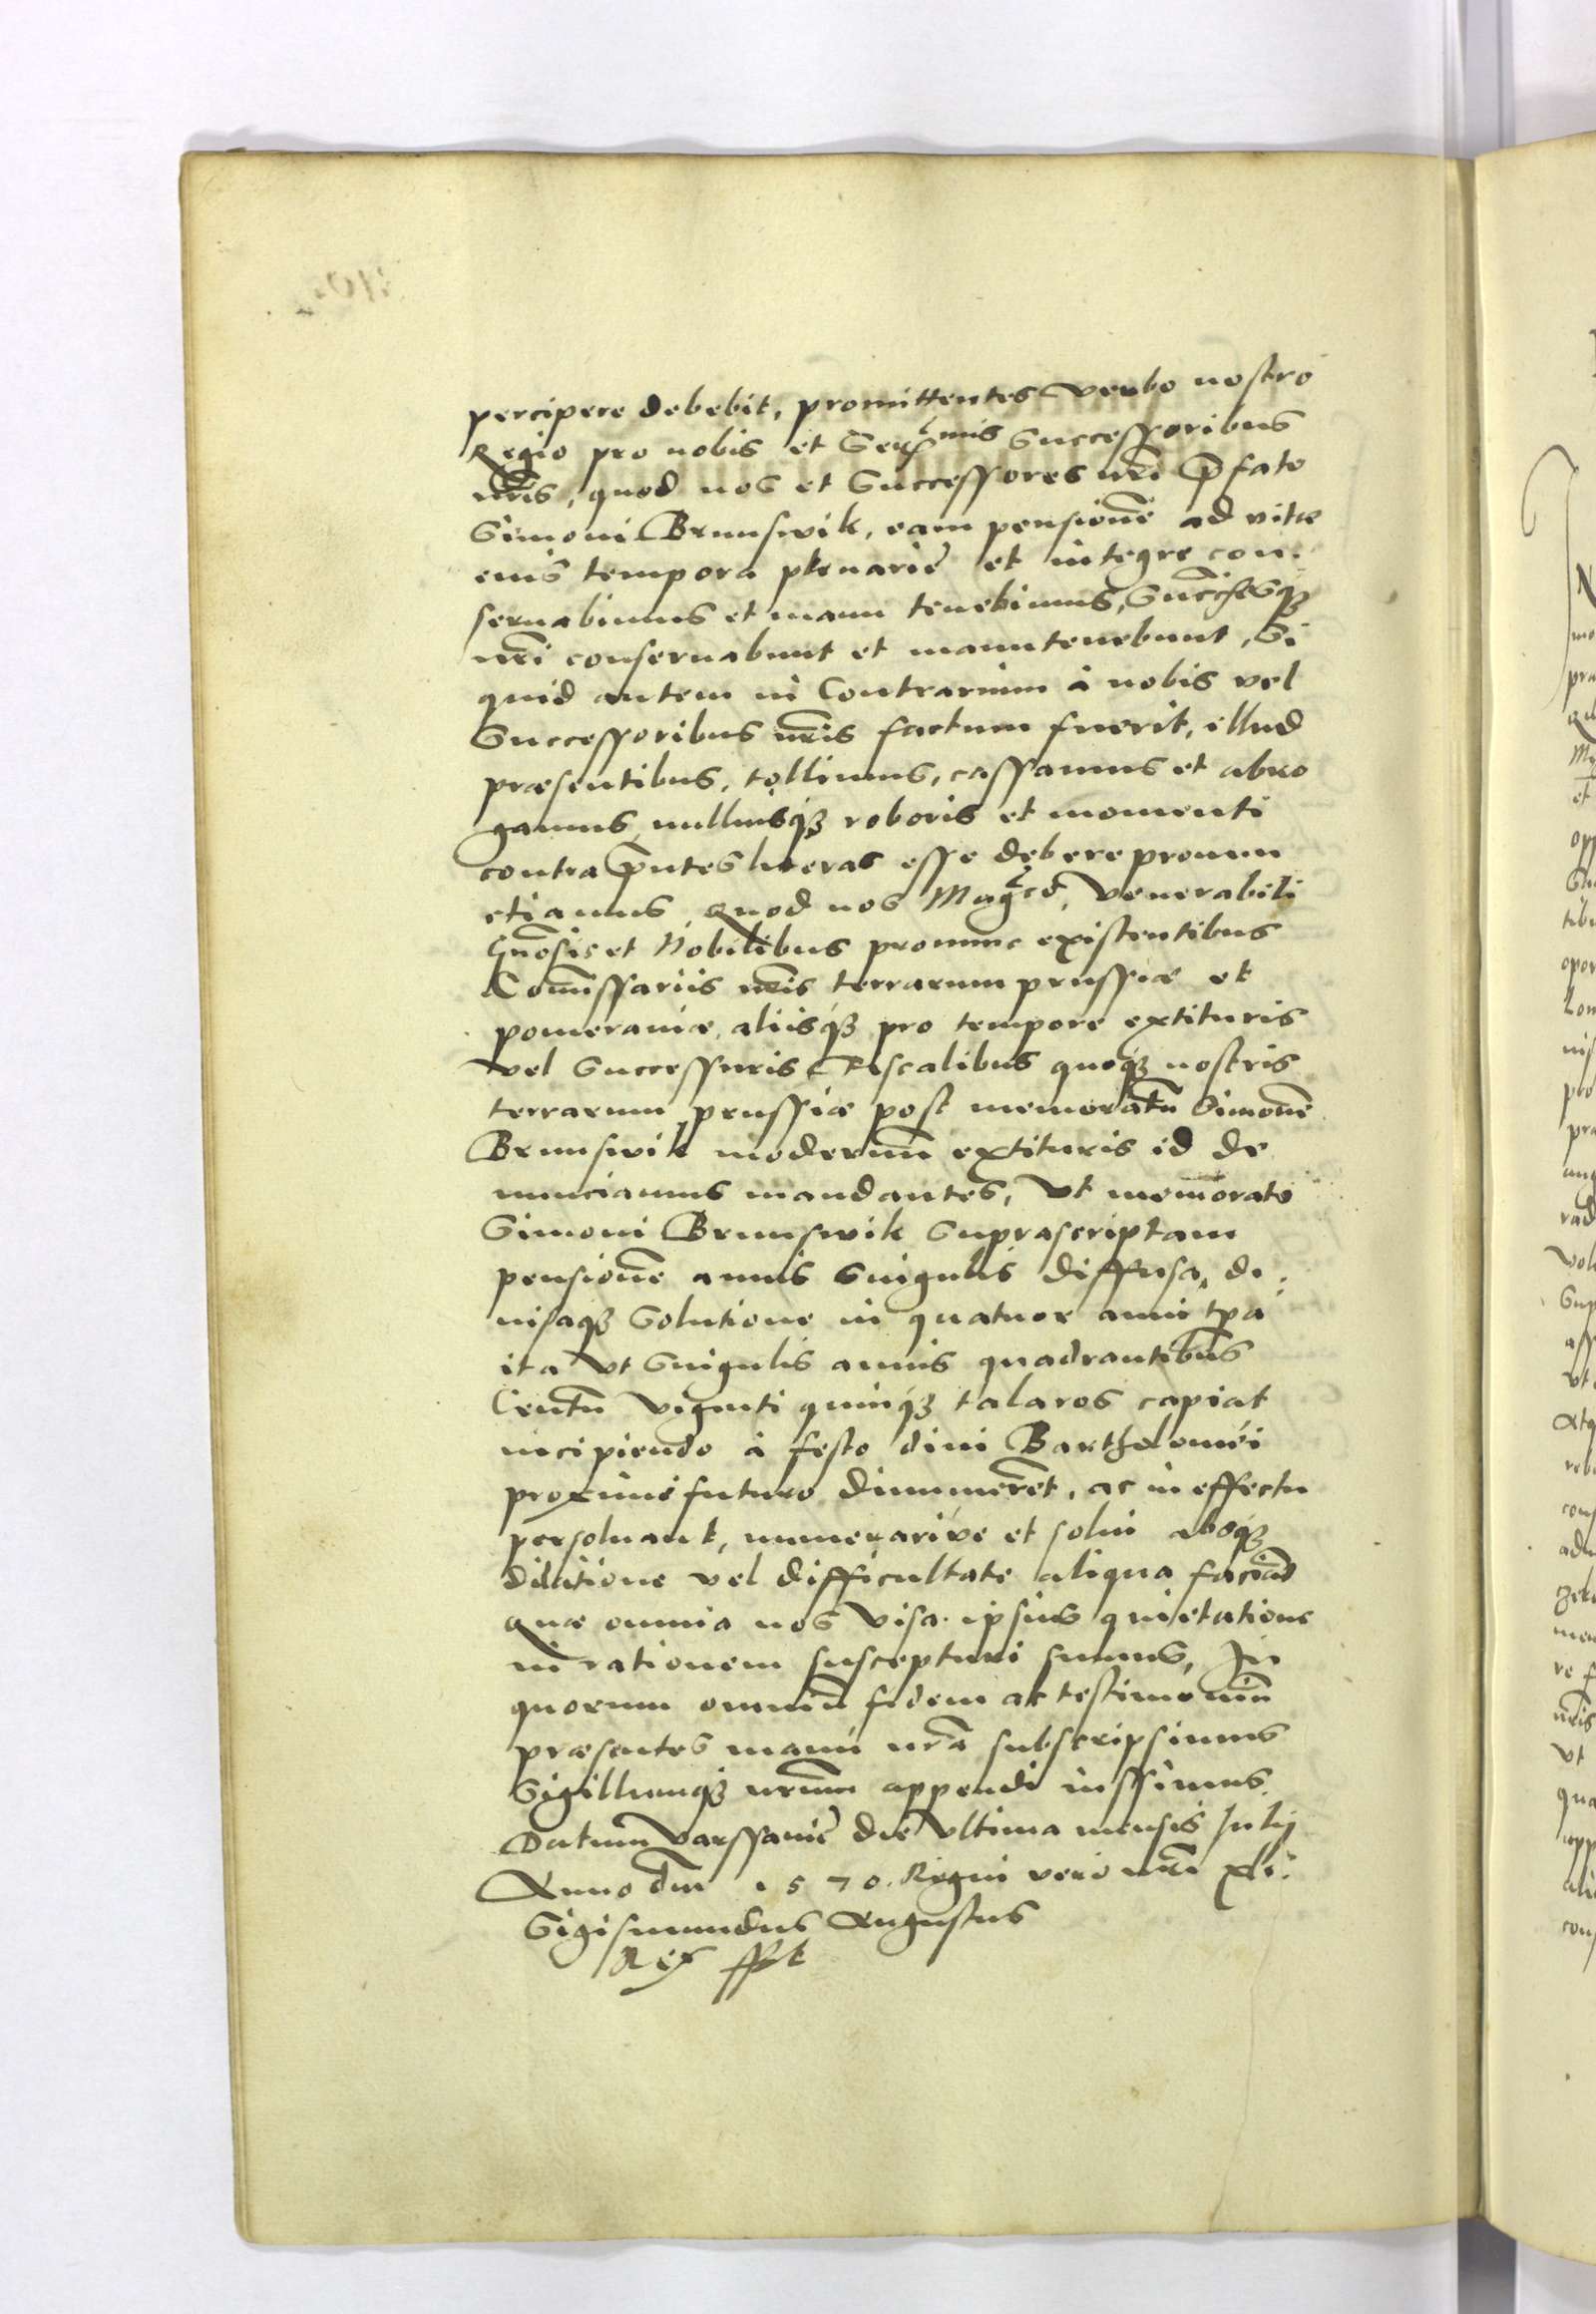 percipere debebit, promittentes verbo nostro
Regio pro nobis et Sermis Successoribus
nris, quod nos et Successores nri pfato
Simoni Brunswik, eam pensione ad vitæ
eius tempora plenarie et integre con:
seruabimus et manu tenebimus, Succesq3
nri conseruabunt et manutenebunt, Si
quid autem in Contrarium à nobis vel
Successoribus nris factum fuerit, illud
præsentibus, tollimus, cassamus et abro
gamus, nulliusq3 roboris et momenti
contra pntes literas esse debere pronun
ctiamus, Quod nos Magcis, Venerabili
Gnosis et Nobilibus pronunc existentibus
Comissariis nris terrarum prussiæ et
pomeraniæ, aliisq3 pro tempore extituris
vel Successuris Fiscalibus quoq3 nostris
terrarum prussiæ post memoratu Simone
Brunswik modernu extituris id de
nunciamus mandantes, Vt memorato
Simoni Brunswik Suprascriptam
pensione annis Singulis diffusa, di:
uisaq3 Solutione in quatuor anni tpa
ita vt Singulis annis quadrantibus
Centu viginti quinq3 talaros capiat
incipiendo à festo diui Bartholomei
proxime futuro dinumeret, ac in effectu
persoluant, numerarive et solui absq3
dilatione vel difficultate aliqua faciat
quæ omnia nos visa ipsius quietatione
in rationem suscepturi sumus, In
quorum omniu fidem ac testimoniu
præsentes manu nra subscripsimus
Sigillumq3 nrum appendi iussimus.
Datum Varssauie die vltima mensis Julij
Anno dni 1570. Regni vero nri xli.
Sigismundus Augustus
Rex sspt